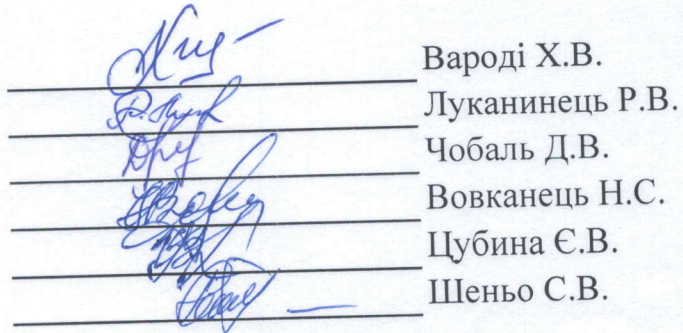 Вароді Х.В.
Луканинець Р.В.
Чобаль Д.В.
Вовканець Н.С.
Цубина Є.В.
Шеньо С.В.